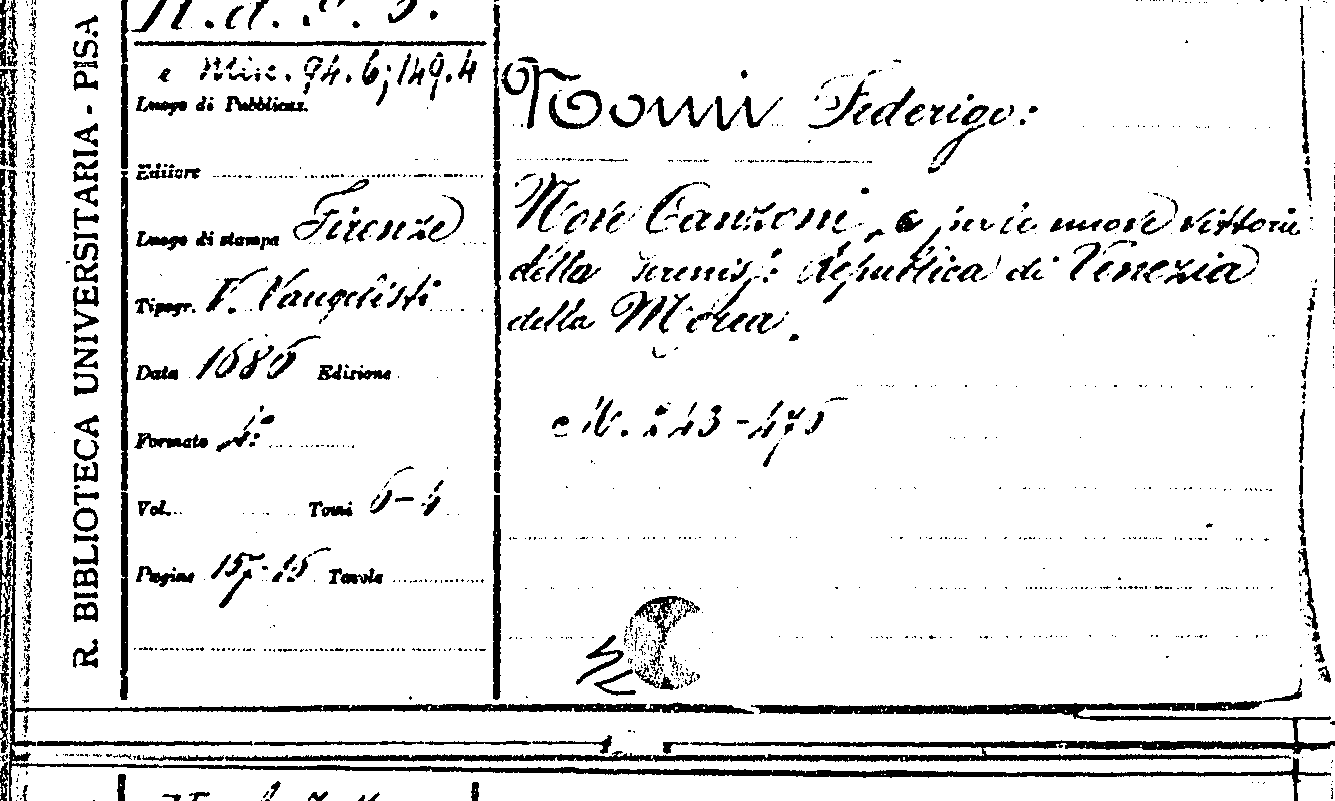 R. BIBLIOTECA UNIVERSITARIA - PISA
e Misc. 94.6; 149.4
Luogo di Pubblicaz.
Editore
Luogo di stampa Firenze
Tipogr. V. Vangelisti
Data 1686 Edizione
Formato 4°
Vol. Tomi 6-4
Pagine 157-16 Tavole
Nomi Federigo:
Canzoni per le nuove vittorie
della Sereniss: Repubblica di Venezia
della Morea.